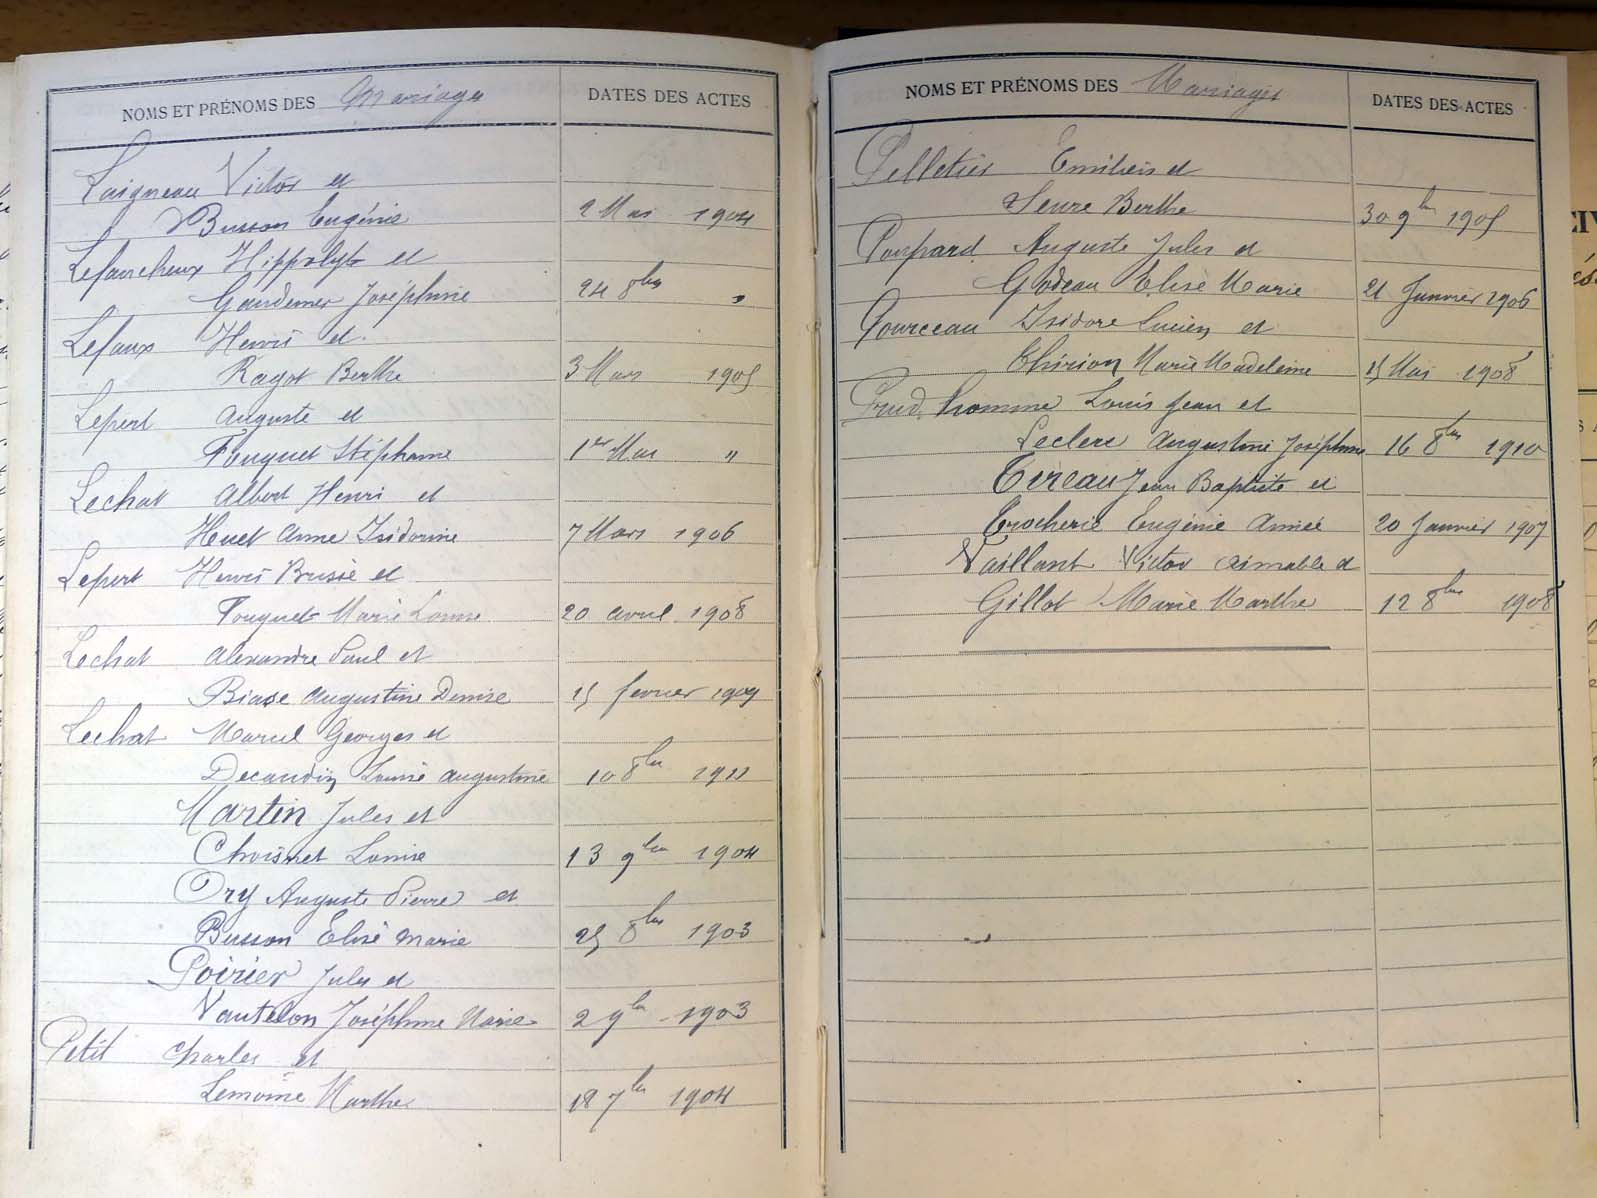 NOMS ET PRÉNOMS DES Mariages DATES DES ACTES
Laigneau Victor et
Busson Eugénie 2 Mai 1904
Lefaucheux Hippolyte et
Gaudemer Joséphine 24 8bre "
Lefaux Henri et
Ragot Berthe 3 Mars 1905
Lepert Auguste et
Fouquet Stéphanie 1er Mai "
Lechat Albert Henri et
Huet Anne Isidorine 7 Mars 1906
Lepert Henri et
Fouquet Marie Louise 20 avril 1908
Lechat Alexandre Paul et
Augustine Denise 15 février 1909
Lechat Marcel Georges et
Decaudin Louise Augustine 10 8bre 1911
Martin Jules et
Choisnet Louise 13 9bre 1904
Ory Auguste Pierre et
Busson Elise Marie 25 8bre 1903
Poirier Jules et
Vautelon Joséphine Marie 2 9bre 1903
Petit Charles et
Lemoine Marthe 18 7bre 1904
NOMS ET PRÉNOMS DES Mariages DATES DES ACTES
Pelletier Emilien et
Seure Berthe 30 9bre 1905
Poupard Auguste Jules et
Godeau Elise Marie 21 Janvier 1906
Pourceau Isidore Lucien et
Thirion Marie Madeleine 15 Mai 1908
Prud'homme Louis Jean et
Leclerc Augustine Joséphine 16 8bre 1910
Tireau Jean Baptiste et
Trocherie Eugénie Aimée 20 Janvier 1907
Vaillant Victor Aimable et
Gillot Marie Marthe 12 8bre 1908